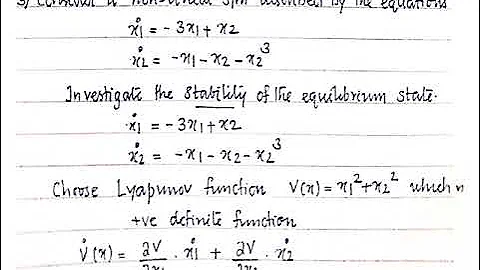 3) Consider a non-linear s/m described by the equations
ẋ1 = -3x1 + x2
ẋ2 = -x1 - x2 - x2³
Investigate the stability of the equilibrium state.
ẋ1 = -3x1 + x2
ẋ2 = -x1 - x2 - x2³
Choose Lyapunov function V(x) = x1² + x2² which
+ve definite function
V̇(x) = ∂V/∂x1 · ẋ1 + ∂V/∂x2 · ẋ2